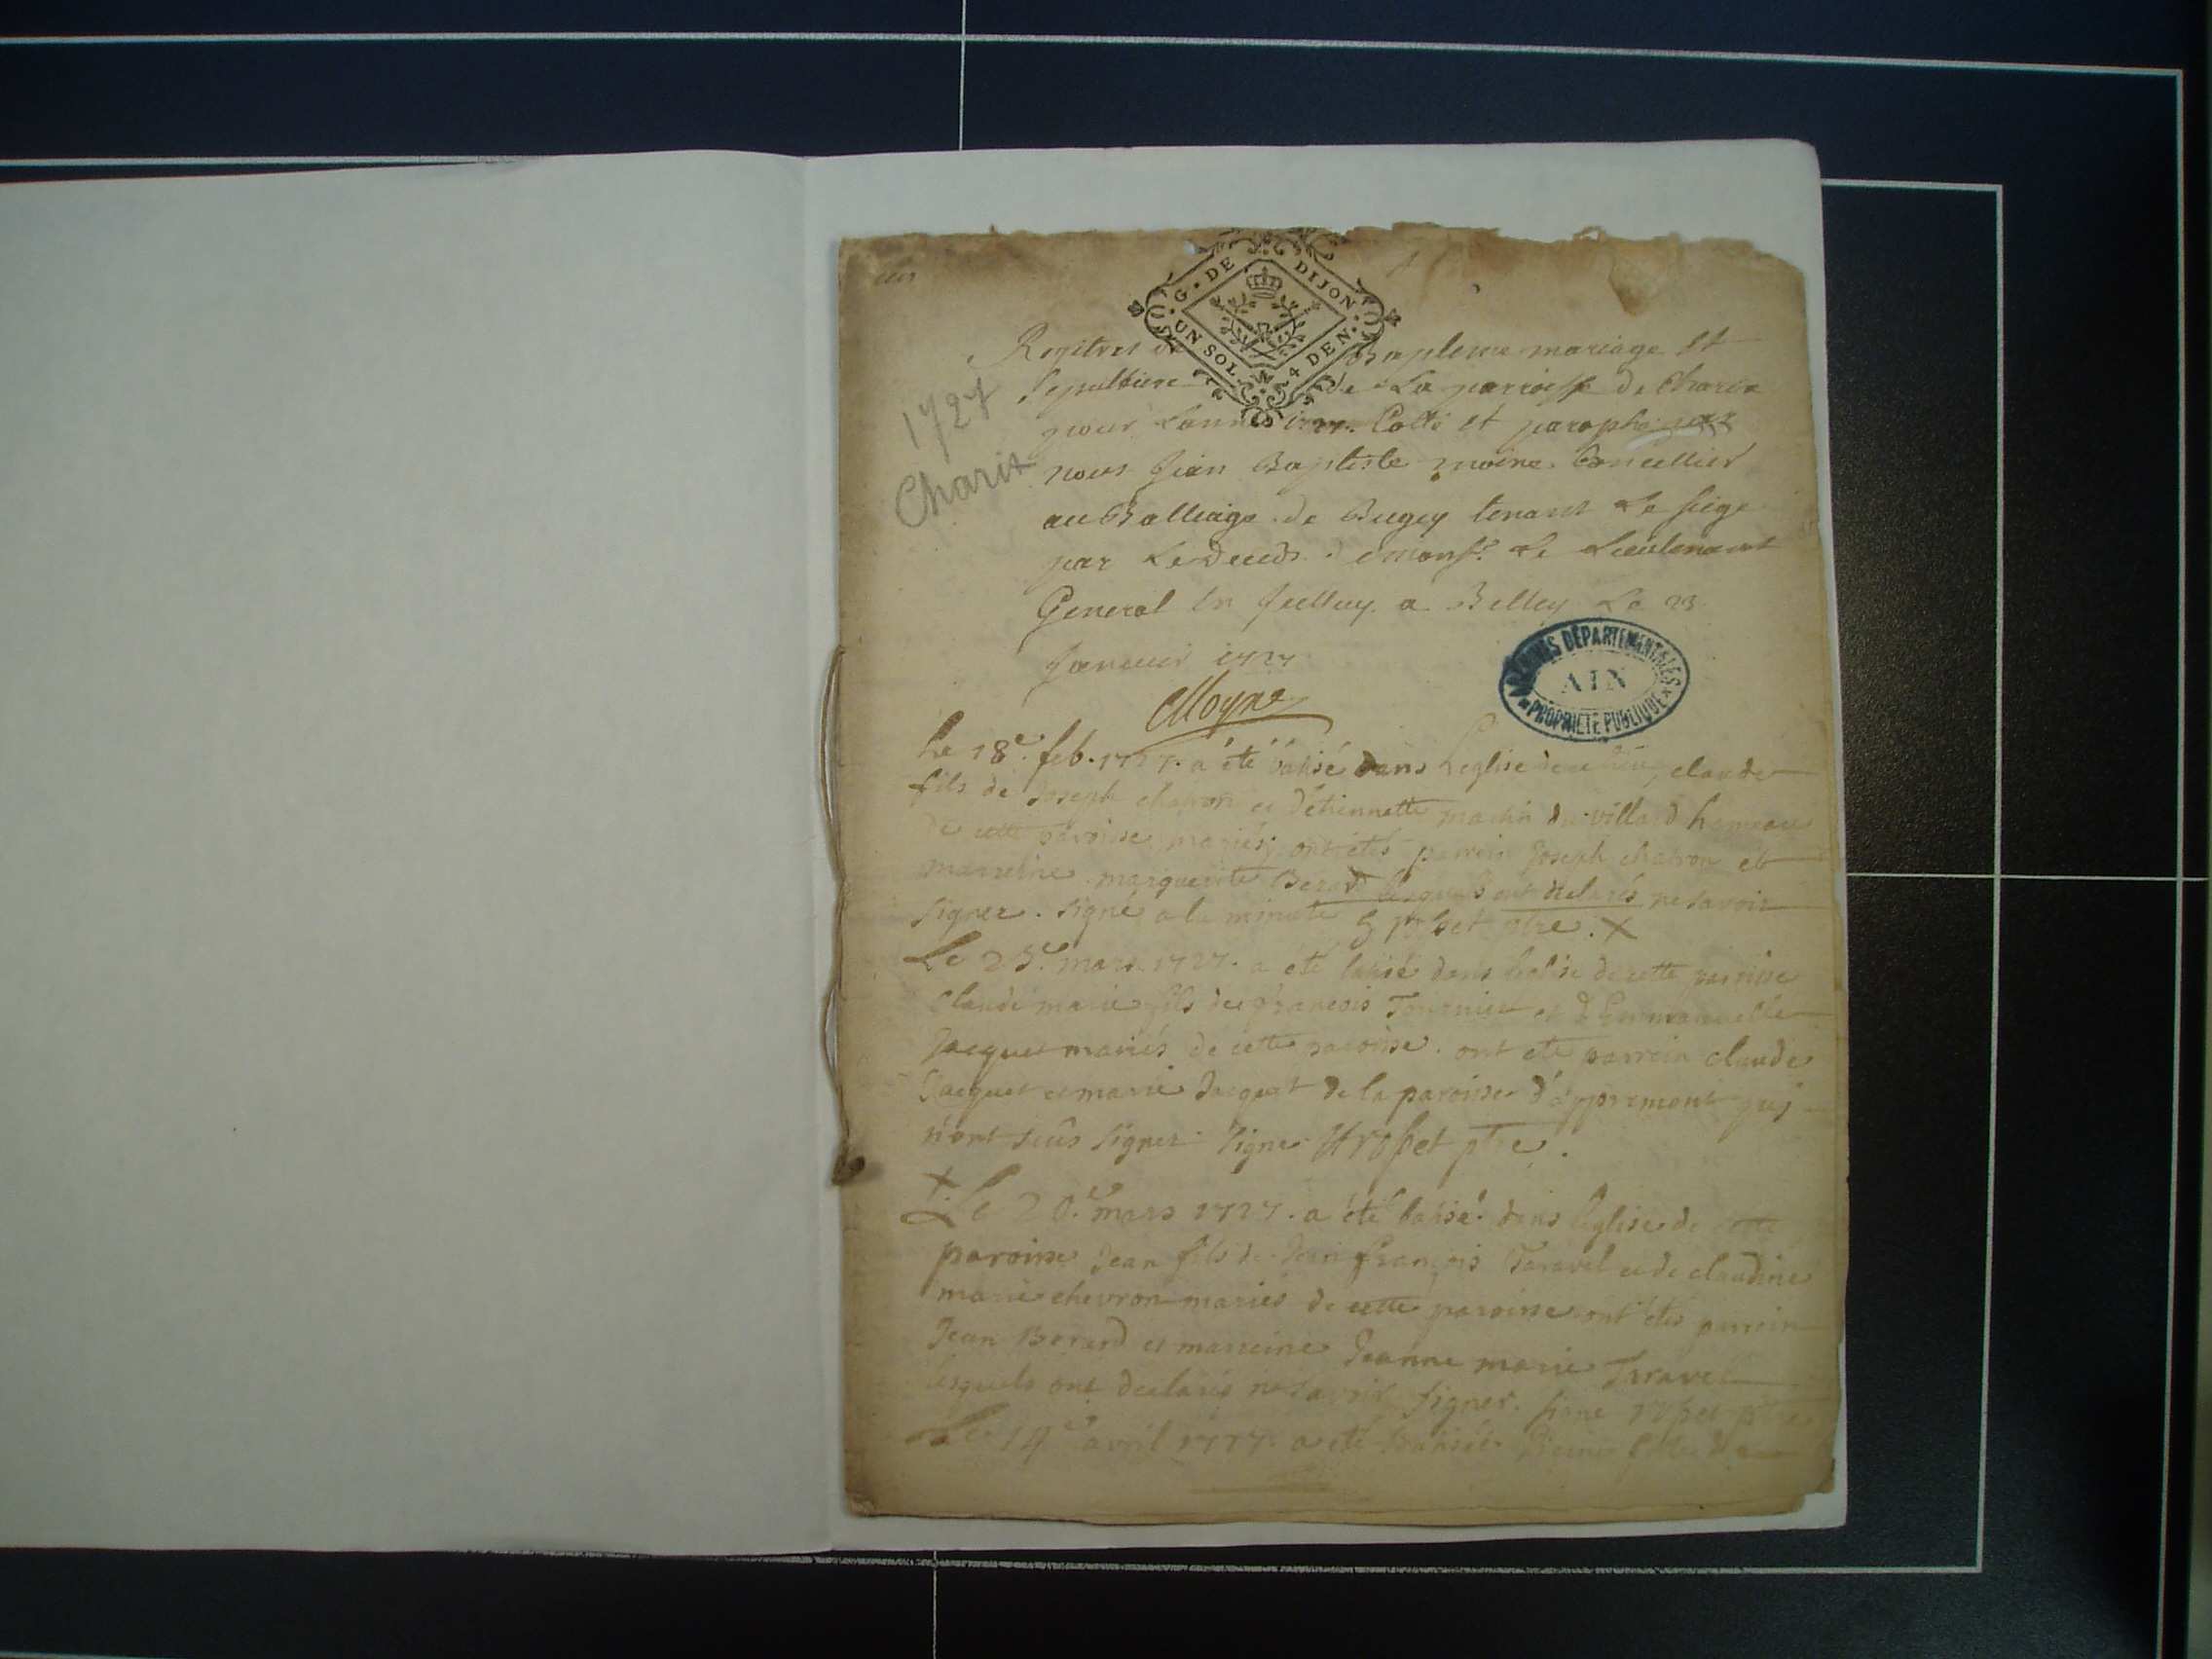 G. DE DIJON
UN SOL. 4 DEN.
1727
Charix
Regitres de Baptesme mariage Et
Sepulture de La parroisse de Charix
pour Lannée 1727. Cotté et paraphé par
nous Jean Baptiste moine Concellier
au Balliage de Bugey tenant Le siege
par Le deceds de monsr. Le Lieutenant
General a Belley Le 23
Janvier 1727
Moyne
ARCHIVES DÉPARTEMENTALES
AIN
PROPRIÉTÉ PUBLIQUE
Le 18e. feb. 1727. a été batisé dans L'eglise de claude
fils de Joseph chatron et d'étiennette du villard hameau
de cette paroisse mariés; ont etés parrein Joseph chatron et
marreine marguerite Berard lesquels ont declarés ne savoir
signer. signé a la minute ptre. X
Le 25e. mars 1727. a été batisé dans leglise de cette paroisse
claude marie fils de françois Tournier et d'Emmanuelle
Jacquet mariés de cette paroisse. ont eté parrein claude
Jacquet et marie Jacquet de la paroisse d'appremont qui
n'ont seus signer. signé ptre.
X
Le mars 1727. a été batisé dans l'eglise de cette
paroisse Jean fils de Jean françois Taravel et de claudine
marie chevron mariés de cette paroisse ont etés parrein
Jean Berard et marreine Jeanne marie Taravel
lesquels ont declarés ne savoir signer. signé ptre
Le 14e avril 1727. a eté batisée fille de